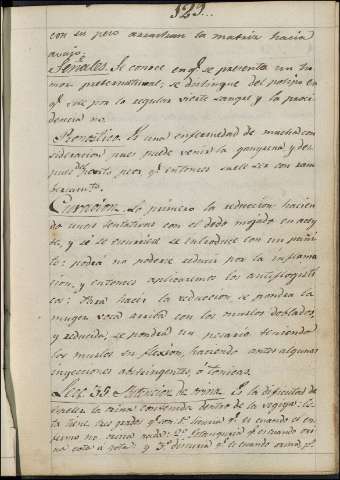 523..
con su peso arrastran la matriz hacia
avajo.
Señales. Se conoce en q.e se presenta un tu
mor preternatural; se distingue del polipo en
q.e este por lo regular vierte sangre y la proci
dencia no.
Pronostico. Es una enfermedad de mucha con
sideracion pues puede venir la gangrena y des
pues del parto peor q.e entonces suele ser con
Curacion. Lo primero la reduccion hacien
do unas tentativas con el dedo mojado en acey
te, y si se escurriese se introduce con un pañi
to: podrá no poderse reducir por la inflama
cion, y entonces aplicaremos los antiflogisti
cos: Para hacer la reduccion, se pondra la
muger voca arriba con los muslos doblados,
y reducida, se pondrá un pesario teniendo
los muslos en flexion, haciendo antes algunas
injecciones abstringentes, ó tonicas.
Lec.n 35 Retencion de orina. Es la dificultad de
expeler la orina contenida dentro de la vegiga: es
ta tiene tres grados q.e son: 1.º disuria q.e es cuando el en
fermo no orina nada: 2.º estanguria q.e es cuando ori
na gota á gota y 3.º disuria q.e es cuando orina p.r